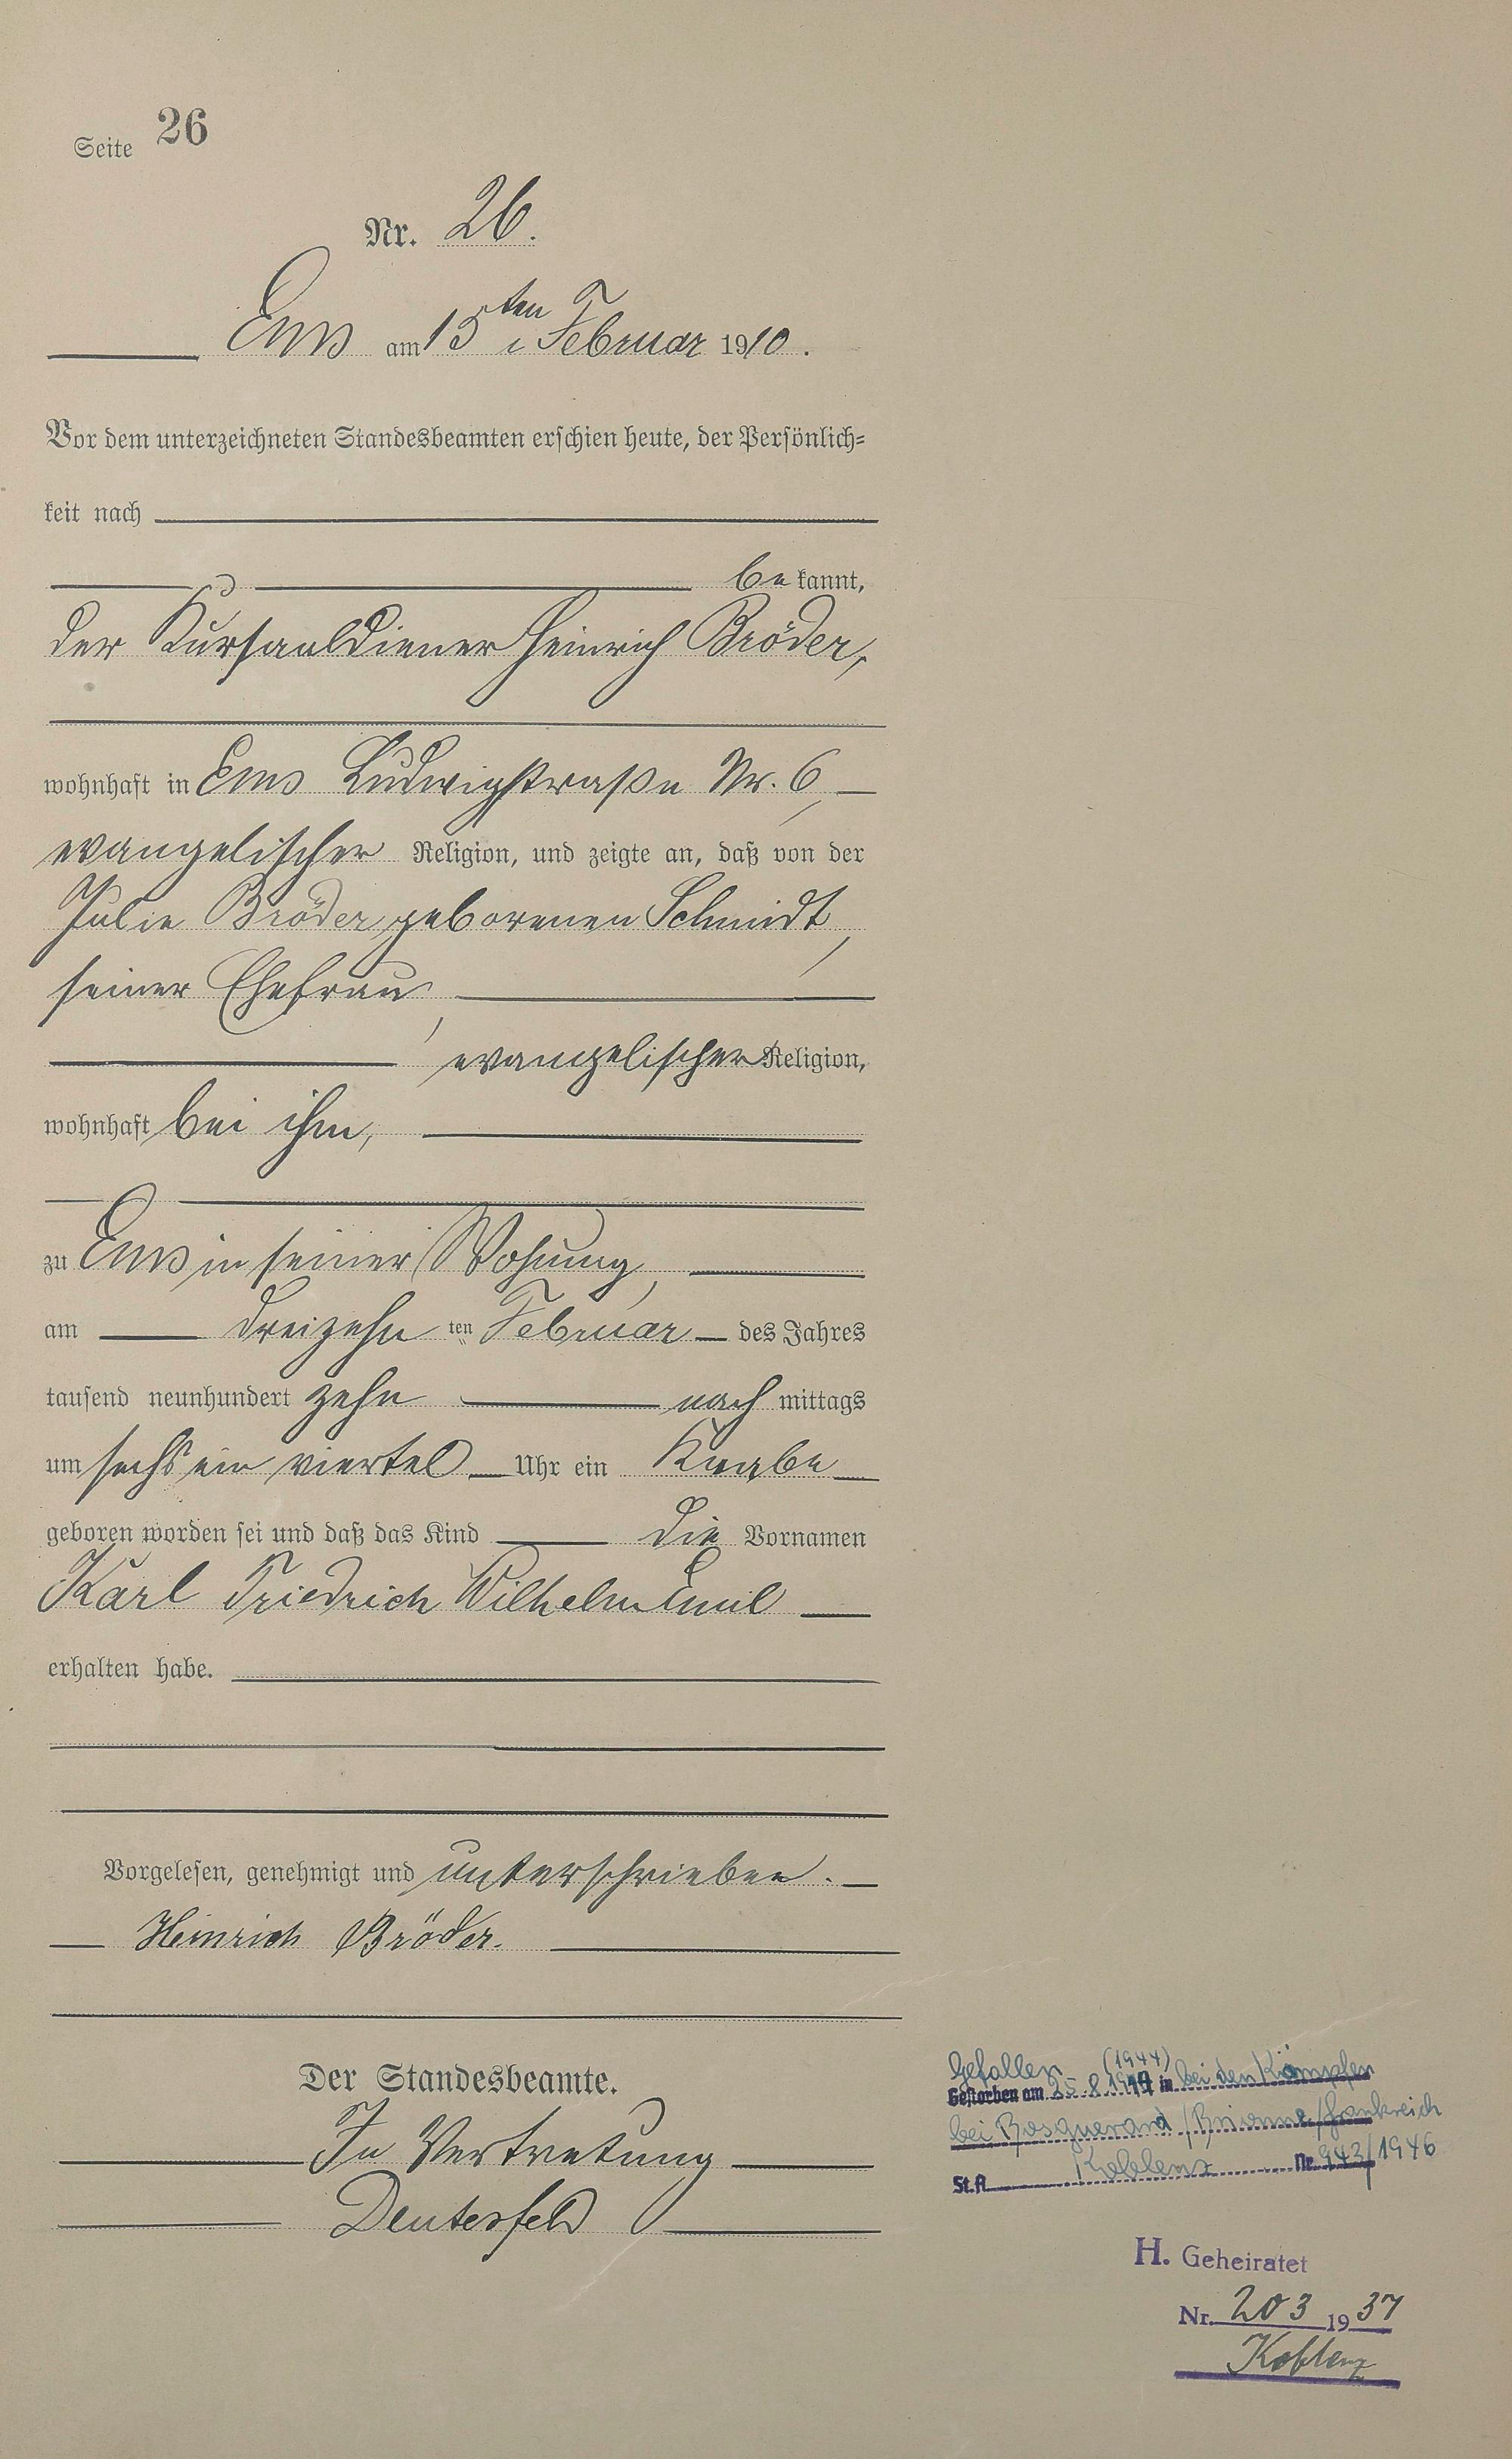 Seite 26
Nr. 26.
Ems am 15ten Februar 1910.
Vor dem unterzeichneten Standesbeamten erschien heute, der Persönlich=
keit nach
bekannt,
der Kursaaldiener Heinrich Bröder,
wohnhaft in Ems Ludwigstraße Nr. 6,
evangelischer Religion, und zeigte an, daß von der
Julie Bröder, geborenen Schmidt,
seiner Ehefrau,
evangelischer Religion,
wohnhaft bei ihm,
zu Ems in seiner Wohnung,
am dreizehnten Februar des Jahres
tausend neunhundert zehn nachmittags
um sechs ein viertel Uhr ein Knabe
geboren worden sei und daß das Kind die Vornamen
Karl Friedrich Wilhelm Emil
erhalten habe.
Vorgelesen, genehmigt und unterschrieben.
Heinrich Bröder.
Der Standesbeamte.
In Vertretung
Deutesfeld
Gefallen (1944)
Gestorben am 25.8.1944 in bei den Kämpfen
bei Bosguerard / Brionne / Frankreich
St.A. Koblenz Nr. 943/1946
H. Geheiratet
Nr. 203 1937
Koblenz